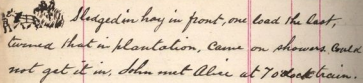 Sledged in hay in front, one load the last,
turned that in plantation, came on showers, could
not get it in, John met Alice at 7 o'clock train.